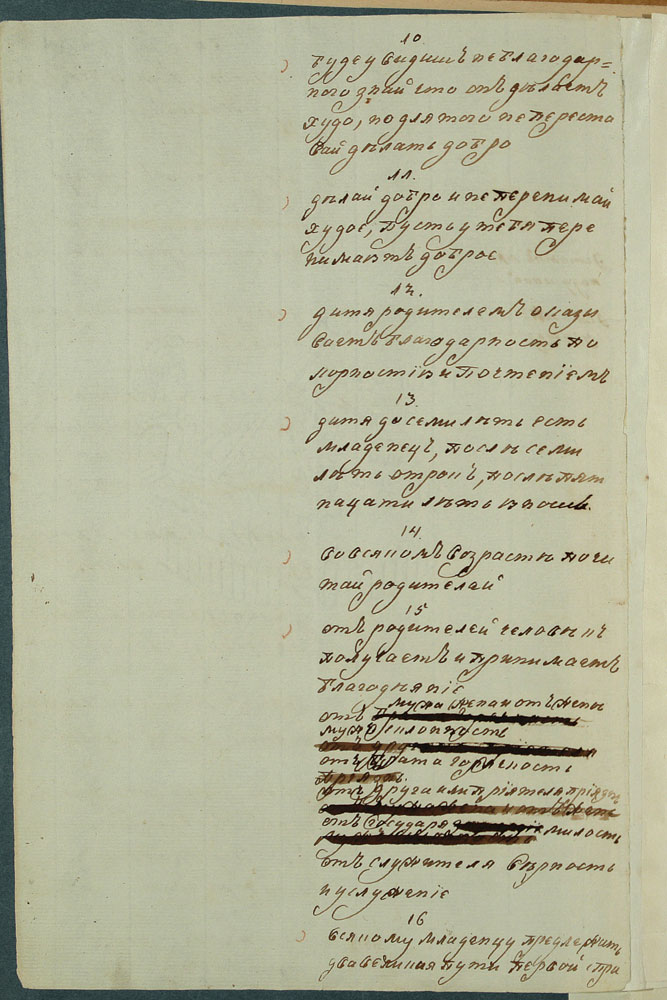 10
буде увидишъ неблагодар=
ного знай что онъ дѣлаетъ
худо, но для того не переста
вай дѣлать добро
11.
дѣлай добро и не перенимай
худое, пусть у тебя пере
нимаютъ доброе
12.
дитя родителемъ оказы
ваетъ благодарность по
корностію и почтеніемъ
13.
дитя до семи лѣтъ есть
младенецъ, послѣ семи
лѣтъ отрокъ, послѣ пят
нацати лѣтъ юноша.
14
во всякомъ возрастѣ почи
тай родителей
15
отъ родителей человѣкъ
получаетъ и принимаетъ
благодѣяніе
мужа жена и отъ жены
отъ
мужъ склонность
отъ брата горячность
отъ друга или пріятеля пріязнь
отъ государя милость
отъ служителя вѣрность
и услуженіе
16
всякому младенцу предлежитъ
два великия пути первой спра